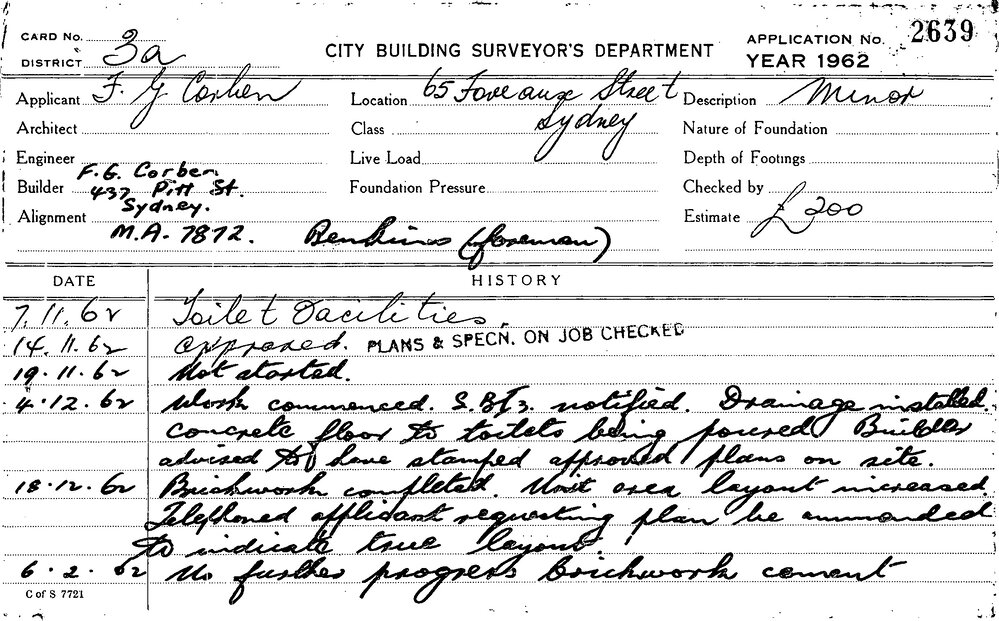 CARD No.
DISTRICT 3a
CITY BUILDING SURVEYOR'S DEPARTMENT
APPLICATION No. 2639
YEAR 1962
Applicant F. G Corben
Location 65 Foveaux Street
Sydney
Description Minor
Architect
Class
Nature of Foundation
Engineer
Live Load
Depth of Footings
Builder F.G. Corben
437 Pitt St.
Sydney.
Foundation Pressure
Checked by
Alignment
M.A. 7872.
(foreman)
Estimate £200
DATE HISTORY
7.11.62 Toilet Facilities
14.11.62 approved. PLANS & SPECN. ON JOB CHECKED
19.11.62 Not started.
4.12.62 Work commenced. notified. Drainage installed.
concrete floor to toilets being poured Builder
advised to have stamped approved plans on site.
18.12.62 Brickwork completed. Unit area layout increased.
Telephoned applicant requesting plan be ammended
to indicate true layout.
6.2.62 No further progress brickwork cement
C of S 7721